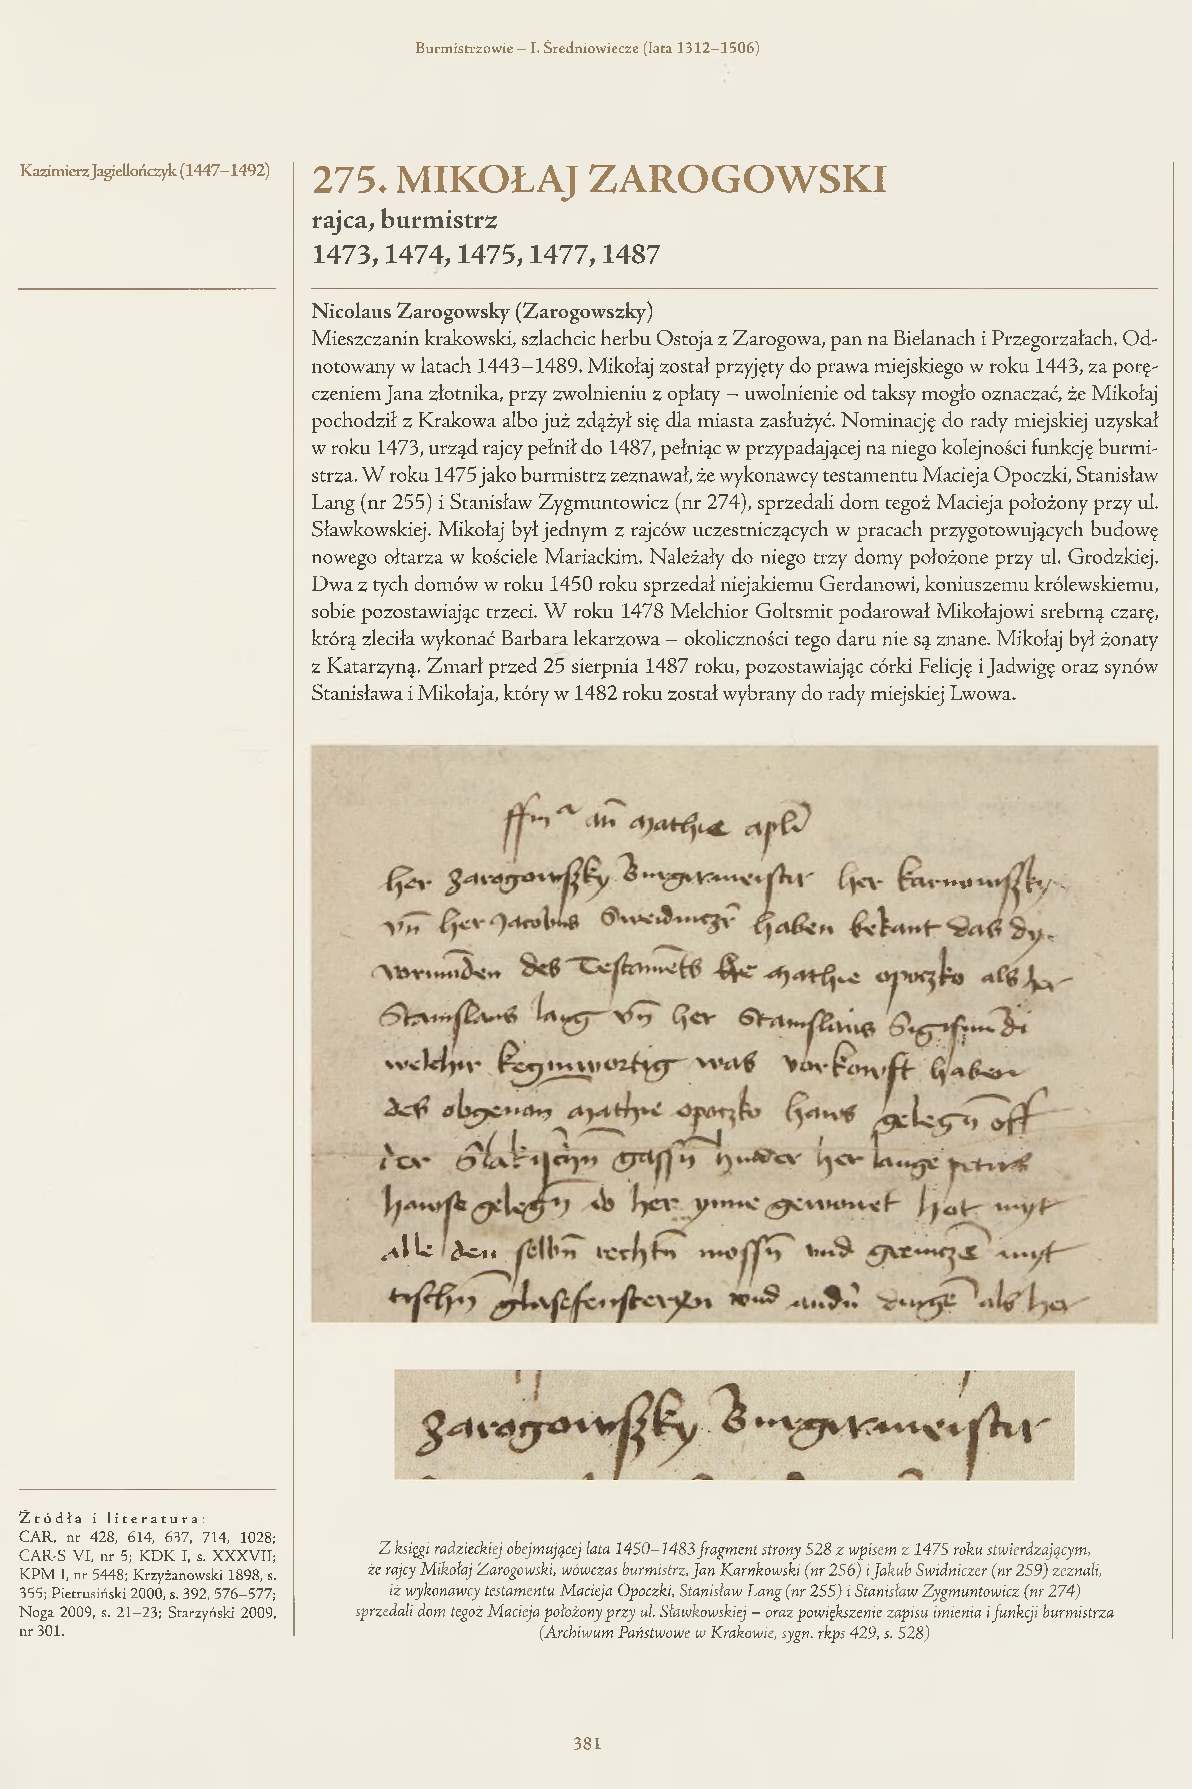 Burmistrzowie – I. Średniowiecze (lata 1312–1506)
Kazimierz Jagiellończyk (1447–1492)
275. MIKOŁAJ ZAROGOWSKI
rajca, burmistrz
1473, 1474, 1475, 1477, 1487
Nicolaus Zarogowsky (Zarogowszky)
Mieszczanin krakowski, szlachcic herbu Ostoja z Zarogowa, pan na Bielanach i Przegorzałach. Od-
notowany w latach 1443–1489. Mikołaj został przyjęty do prawa miejskiego w roku 1443, za porę-
czeniem Jana złotnika, przy zwolnieniu z opłaty – uwolnienie od taksy mogło oznaczać, że Mikołaj
pochodził z Krakowa albo już zdążył się dla miasta zasłużyć. Nominację do rady miejskiej uzyskał
w roku 1473, urząd rajcy pełnił do 1487, pełniąc w przypadającej na niego kolejności funkcję burmi-
strza. W roku 1475 jako burmistrz zeznawał, że wykonawcy testamentu Macieja Opoczki, Stanisław
Lang (nr 255) i Stanisław Zygmuntowicz (nr 274), sprzedali dom tegoż Macieja położony przy ul.
Sławkowskiej. Mikołaj był jednym z rajców uczestniczących w pracach przygotowujących budowę
nowego ołtarza w kościele Mariackim. Należały do niego trzy domy położone przy ul. Grodzkiej.
Dwa z tych domów w roku 1450 roku sprzedał niejakiemu Gerdanowi, koniuszemu królewskiemu,
sobie pozostawiając trzeci. W roku 1478 Melchior Goltsmit podarował Mikołajowi srebrną czarę,
którą zleciła wykonać Barbara lekarzowa – okoliczności tego daru nie są znane. Mikołaj był żonaty
z Katarzyną. Zmarł przed 25 sierpnia 1487 roku, pozostawiając córki Felicję i Jadwigę oraz synów
Stanisława i Mikołaja, który w 1482 roku został wybrany do rady miejskiej Lwowa.
an̄ mathie apl̄i
her Zarogowszky Burgirmeistir her karnowszky
vn̄ her Jacobus Sweidniczr̄ haben bekant das dy
vormūden des Testamēts mathie opoczko als her
Stanislaus lang vn̄ her Stanislaus Sigismūdi
welchir keginwortig was vorkowft haben
des obgenan mathie opoczko haws gelegn̄ off
der gassn̄ hinder her lange petirs
hawse gelegn̄ do her ynne gewonet hot myt
alle den selbn̄ rechtn̄ mossn̄ vnd grenicze myt
tischn̄ glasefenstern vnd andn̄ dinge als her
Zarogowszky Burgirmeistir
Źródła i literatura:
CAR, nr 428, 614, 637, 714, 1028;
CAR-S VI, nr 5; KDK I, s. XXXVII;
KPM I, nr 5448; Krzyżanowski 1898, s.
355; Pietrusiński 2000, s. 392, 576–577;
Noga 2009, s. 21–23; Starzyński 2009,
nr 301.
Z księgi radzieckiej obejmującej lata 1450–1483 fragment strony 528 z wpisem z 1475 roku stwierdzającym,
że rajcy Mikołaj Zarogowski, wówczas burmistrz, Jan Karnkowski (nr 256) i Jakub Swidniczer (nr 259) zeznali,
iż wykonawcy testamentu Macieja Opoczki, Stanisław Lang (nr 255) i Stanisław Zygmuntowicz (nr 274)
sprzedali dom tegoż Macieja położony przy ul. Sławkowskiej – oraz powiększenie zapisu imienia i funkcji burmistrza
(Archiwum Państwowe w Krakowie, sygn. rkps 429, s. 528)
381